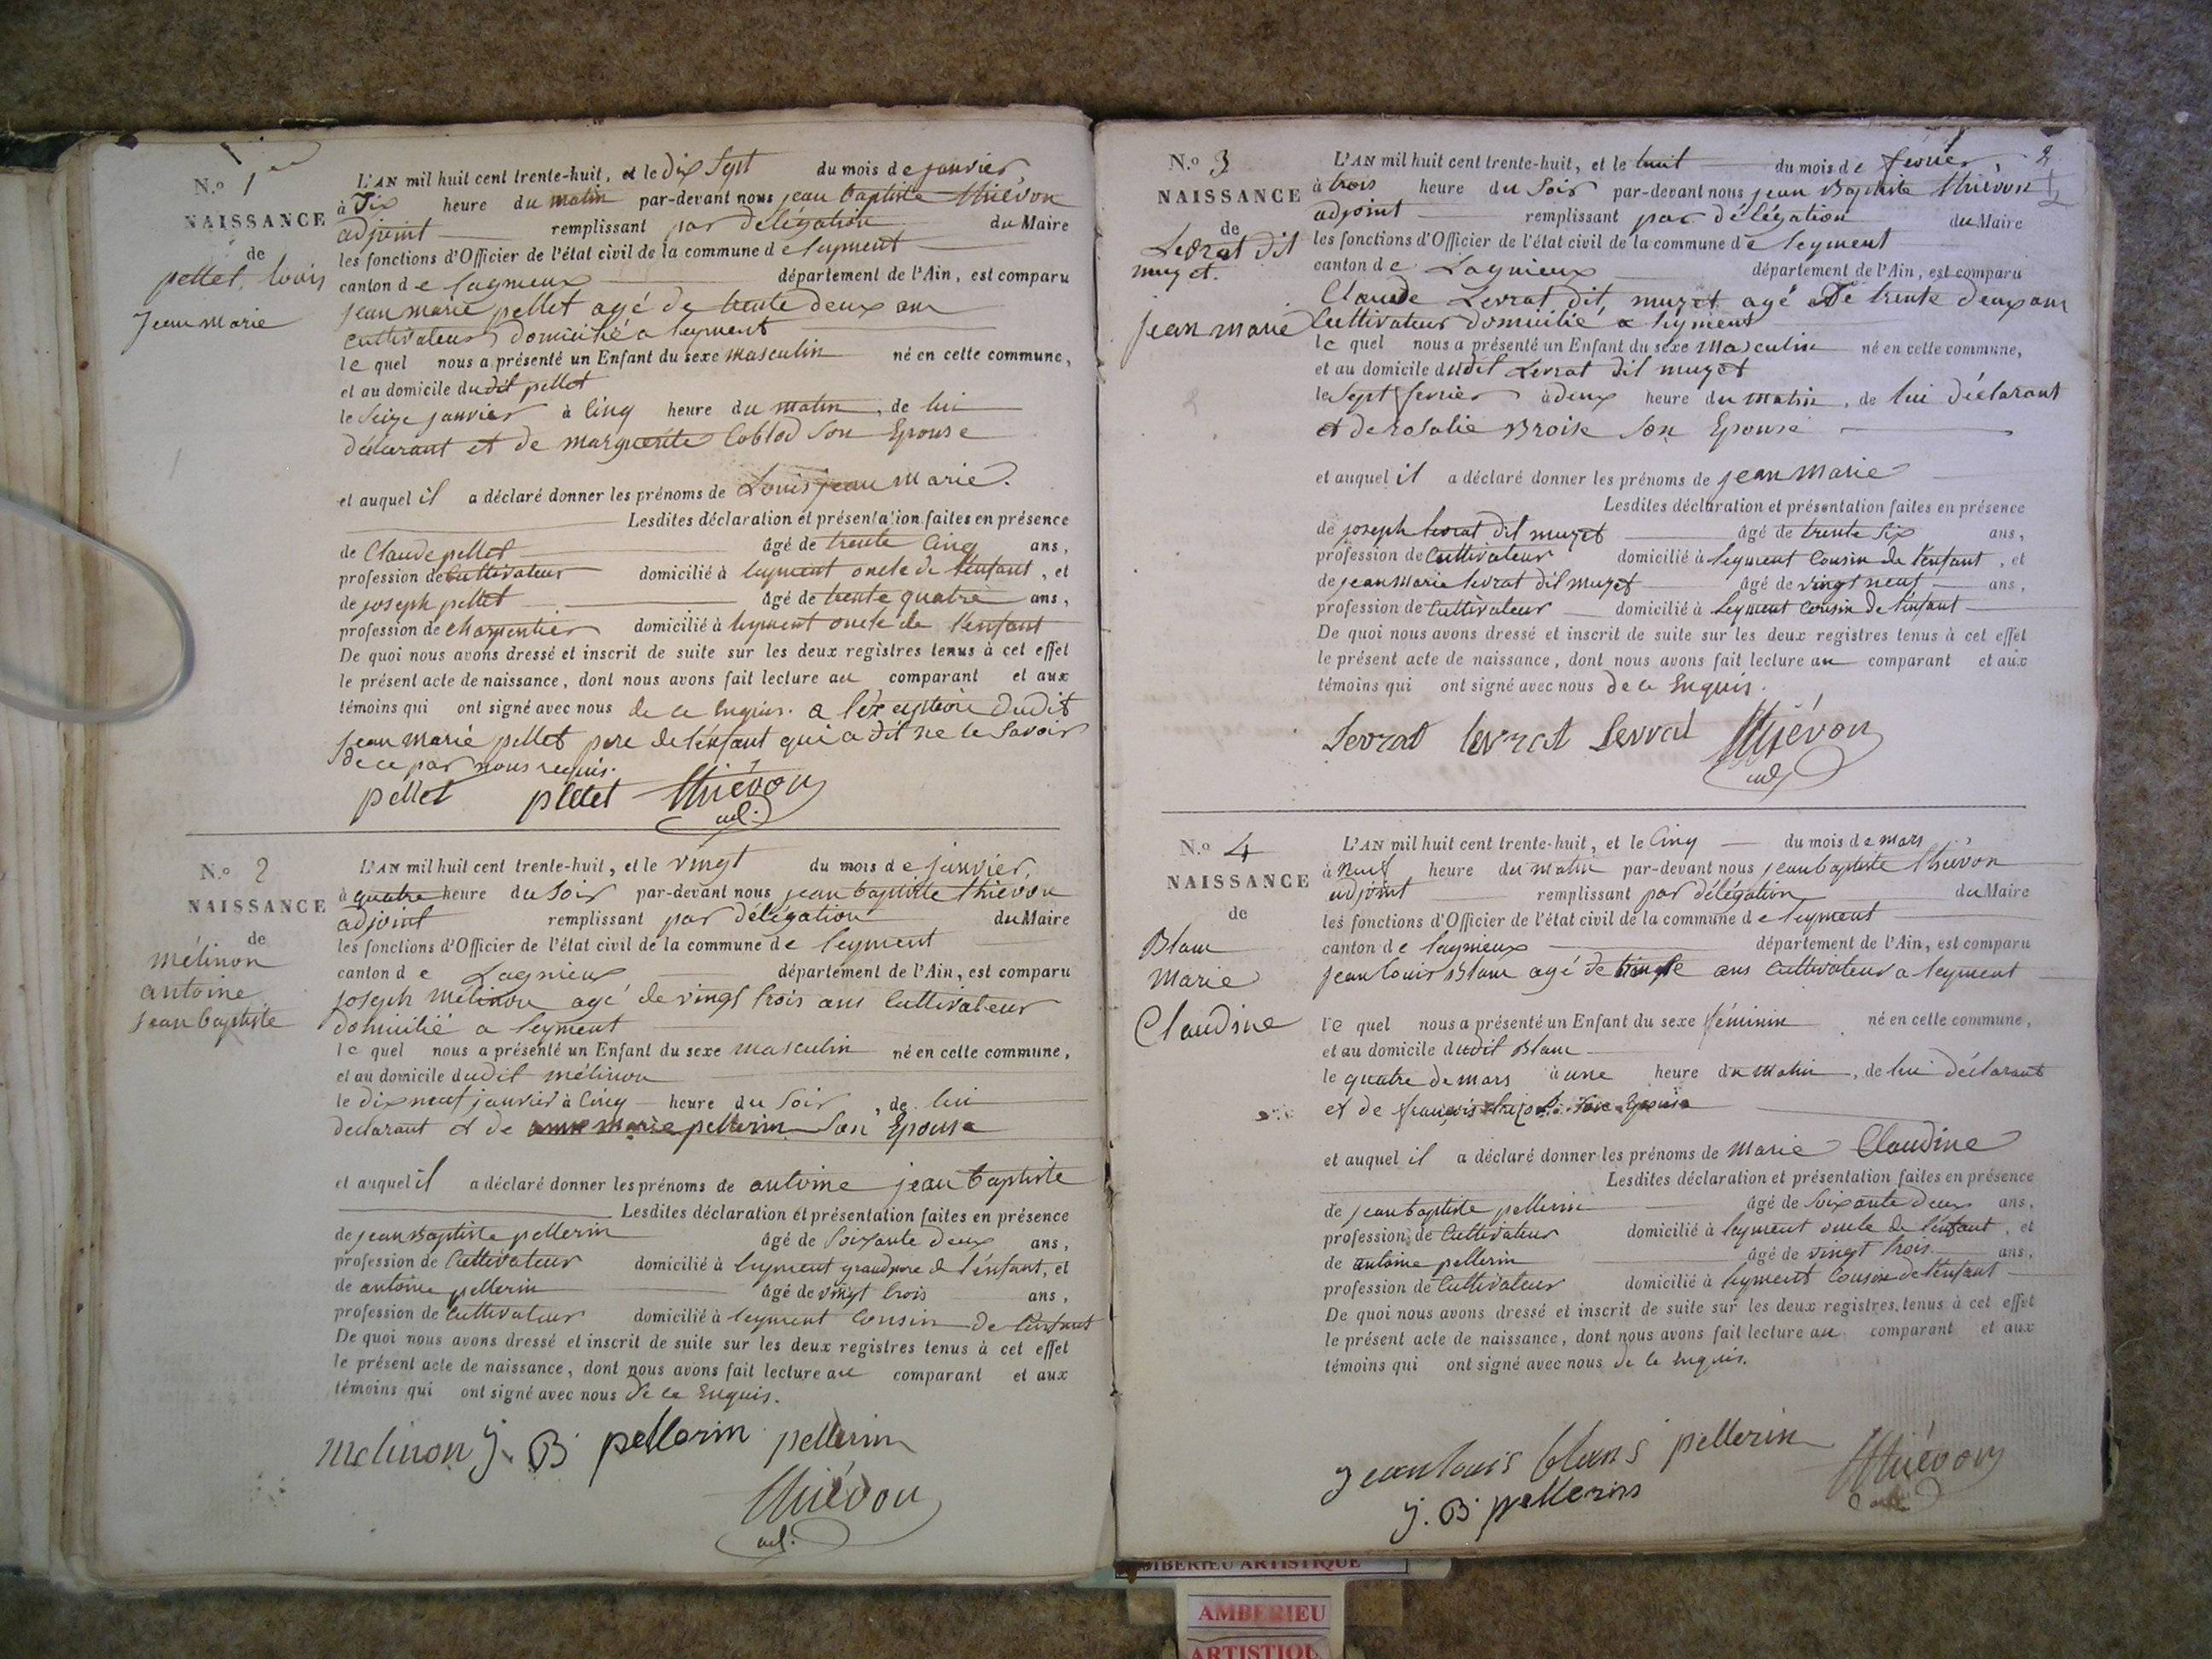 N.o 1
NAISSANCE
de
pellet, louis
Jean Marie
L'AN mil huit cent trente-huit, et le Dix Sept du mois de janvier
à Dix heure du matin par-devant nous jean baptiste thiévon
adjoint remplissant par délégation du Maire
les fonctions d'Officier de l'état civil de la commune de leyment
canton de lagnieux département de l'Ain, est comparu
jean marie pellet agé de trente deux ans
cultivateur domicilié a leyment
le quel nous a présenté un Enfant du sexe masculin né en cette commune,
et au domicile dudit pellet
le Seize janvier à Cinq heure du matin, de lui
déclarant et de marguerite Son Epouse
et auquel il a déclaré donner les prénoms de Louis jean Marie.
Lesdites déclaration et présentation faites en présence
de Claude pellet âgé de trente Cinq ans,
profession de Cultivateur domicilié à leyment oncle de l'enfant, et
de joseph pellet âgé de trente quatre ans,
profession de charpentier domicilié à leyment oncle de l'enfant
De quoi nous avons dressé et inscrit de suite sur les deux registres tenus à cet effet
le présent acte de naissance, dont nous avons fait lecture au comparant et aux
témoins qui ont signé avec nous de ce Enquis. a l'exception dudit
jean marie pellet pere de l'enfant qui a dit ne le Savoir
de ce par nous requis.
pellet pellet thiévon
adj.
N.o 2
NAISSANCE
de
mélinon
antoine
jean baptiste
L'AN mil huit cent trente-huit, et le vingt du mois de janvier,
à quatre heure du Soir par-devant nous jean baptiste thiévon
adjoint remplissant par délégation du Maire
les fonctions d'Officier de l'état civil de la commune de leyment
canton de Lagnieux département de l'Ain, est comparu
joseph mélinon agé de vingt trois ans Cultivateur
domicilié a leyment
le quel nous a présenté un Enfant du sexe masculin né en cette commune,
et au domicile dudit mélinon
le dix neuf janvier à Cinq heure du Soir, de lui
declarant et de marie pellerin Son Epouse
et auquel il a déclaré donner les prénoms de antoine jean baptiste
Lesdites déclaration et présentation faites en présence
de jean Baptiste pellerin âgé de Soixante Deux ans,
profession de Cultivateur domicilié à leyment grandpere de l'enfant, et
de antoine pellerin âgé de vingt trois ans,
profession de Cultivateur domicilié à leyment Cousin de l'enfant
De quoi nous avons dressé et inscrit de suite sur les deux registres tenus à cet effet
le présent acte de naissance, dont nous avons fait lecture au comparant et aux
témoins qui ont signé avec nous de ce Enquis.
melinon J. B pellerin pellerin
thiévon
adj.
2
N.o 3
NAISSANCE
de
Levrat dit
muzet.
jean marie
L'AN mil huit cent trente-huit, et le huit du mois de fevrier,
à trois heure du Soir par-devant nous jean Baptiste thiévon
adjoint remplissant par délégation du Maire
les fonctions d'Officier de l'état civil de la commune de leyment
canton de Lagnieux département de l'Ain, est comparu
Claude Levrat dit muzet agé de trente deux ans
Cultivateur domicilié a leyment
le quel nous a présenté un Enfant du sexe masculin né en cette commune,
et au domicile dudit Levrat dit muzet
le Sept fevrier à deux heure du matin, de lui déclarant
et de rosalie Son Epouse
et auquel il a déclaré donner les prénoms de jean Marie
Lesdites déclaration et présentation faites en présence
de joseph levrat dit muzet âgé de trente Six ans,
profession de Cultivateur domicilié à leyment Cousin de l'enfant, et
de jean marie levrat dit muzet âgé de vingt neuf ans,
profession de Cultivateur domicilié à leyment Cousin de l'enfant
De quoi nous avons dressé et inscrit de suite sur les deux registres tenus à cet effet
le présent acte de naissance, dont nous avons fait lecture au comparant et aux
témoins qui ont signé avec nous de ce Enquis.
Levrat levrat Levrat thiévon
adj
N.o 4
NAISSANCE
de
Blanc
Marie
Claudine
L'AN mil huit cent trente-huit, et le Cinq du mois de mars
à neuf heure du matin par-devant nous jean baptiste thiévon
adjoint remplissant par délégation du Maire
les fonctions d'Officier de l'état civil de la commune de leyment
canton de lagnieux département de l'Ain, est comparu
jean louis Blanc agé de ans Cultivateur a leyment
le quel nous a présenté un Enfant du sexe féminin né en cette commune,
et au domicile dudit Blanc
le quatre de mars à une heure du matin, de lui déclarant
et de Son Epouse
et auquel il a déclaré donner les prénoms de Marie Claudine
Lesdites déclaration et présentation faites en présence
de jean baptiste pellerin âgé de Soixante Deux ans,
profession de Cultivateur domicilié à leyment oncle de l'enfant, et
de antoine pellerin âgé de vingt trois ans,
profession de Cultivateur domicilié à leyment Cousin de l'enfant
De quoi nous avons dressé et inscrit de suite sur les deux registres tenus à cet effet
le présent acte de naissance, dont nous avons fait lecture au comparant et aux
témoins qui ont signé avec nous de ce Enquis.
Jean louis blanc pellerin thiévon
J. B pellerin
AMBERIEU ARTISTIQUE
AMBERIEU
ARTISTIQU